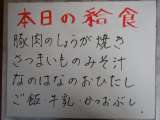 本日の給食
豚肉のしょうが焼き
さつまいものみそ汁
なのはなのおひたし
ご飯・牛乳・かつおぶし